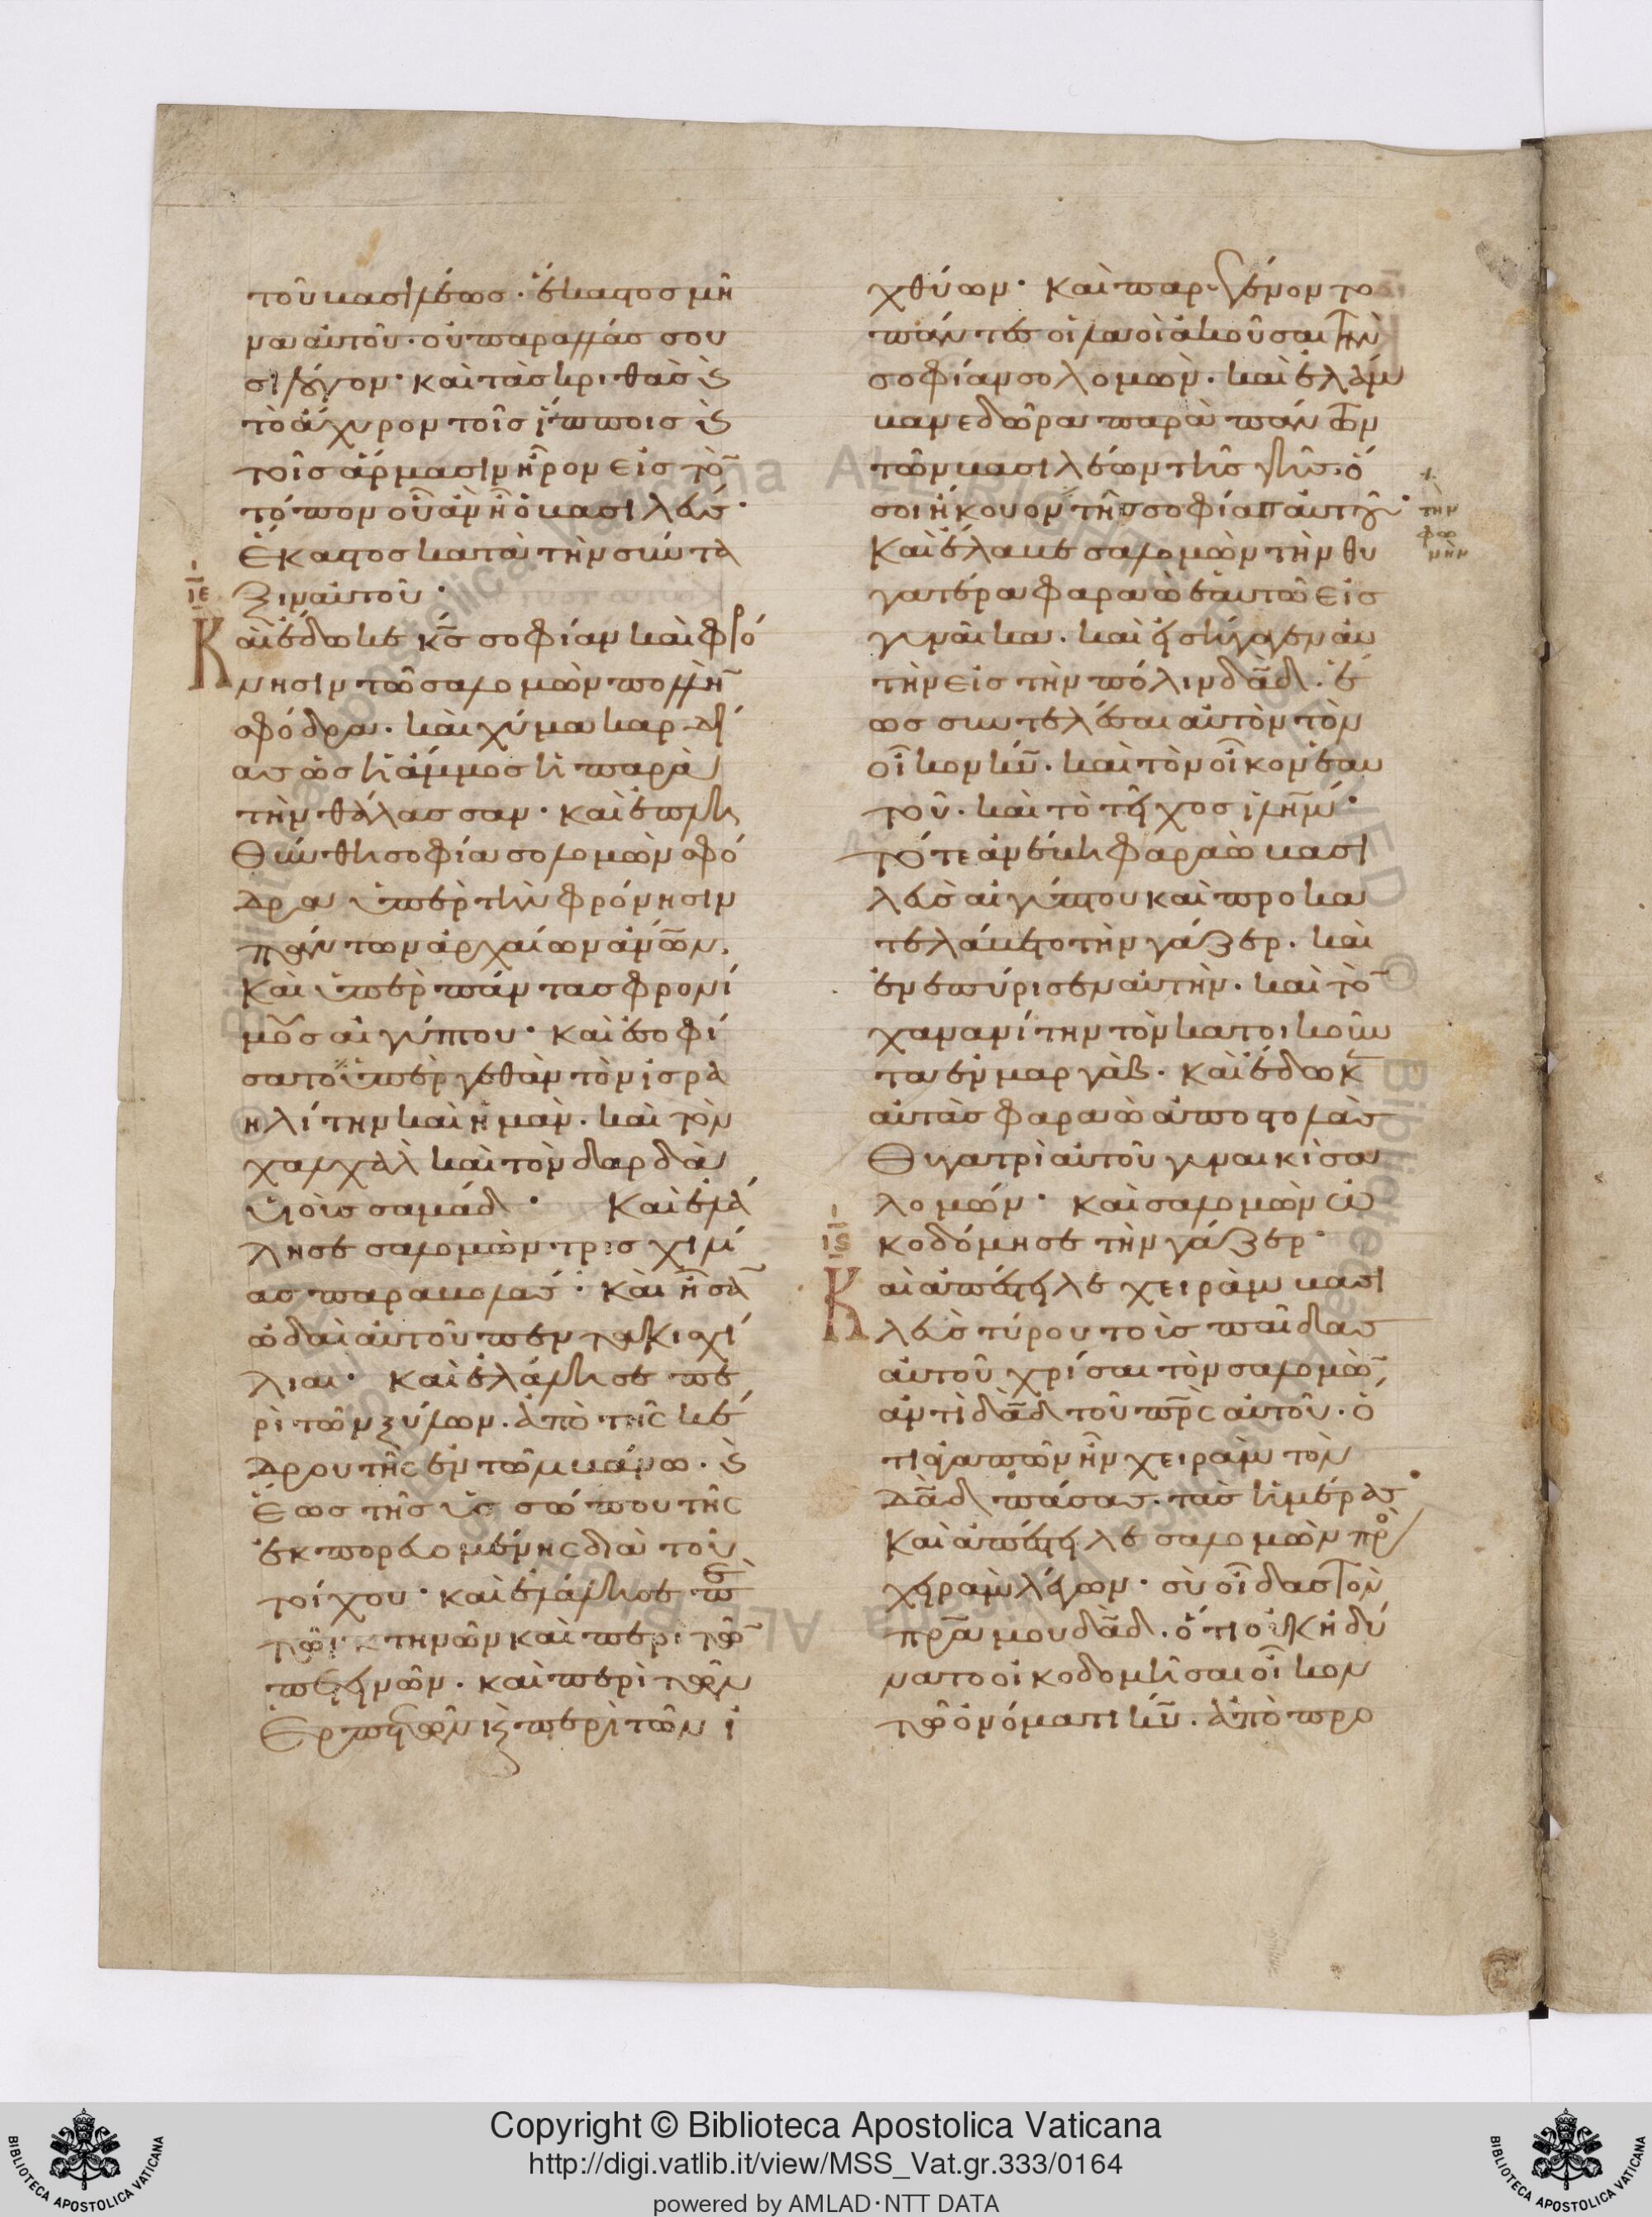 τοῦ βασιλέως· ἕκαστος μῆ
να αὐτοῦ· οὐ παραλλάσσου
σι λόγον· καὶ τὰς κριθὰς καὶ
τὸ ἄχυρον τοῖς ἵπποις καὶ
τοῖς ἅρμασιν ἦρον εἰς τὸ̄
τόπον οὗ ἂν ἦ ὁ βασιλεύς·
Ἕκαστος κατὰ τὴν σύντα
ξιν αὐτοῦ·
ιε
Καὶ ἔδωκε κ̅ς̅ σοφίαν καὶ φρό
νησιν τῶ σαλομὼν πολλὴ̄
σφόδρα· καὶ χύμα καρδί
ας ὡς ἡ ἄμμος ἡ παρὰ
τὴν θάλασσαν· Καὶ ἐπλη
θύνθη σοφία σολομὼν σφό
δρα ὑπὲρ τὴν φρόνησιν
πάντων ἀρχαίων ἀν̅ω̅ν.
Καὶ ὑπὲρ πάντας φρονί
μους αἰγύπτου· Καὶ ἐσοφί
σατο ὑπὲρ γεθὰν τὸν ἰσρα
ηλίτην καὶ ἠμὰν. καὶ τὸν
χαλχὰλ καὶ τὸν δαρδὰ
υἱοὺς σαμάδ· Καὶ ἐλά
λησε σαλομὼν τρισχιλί
ας παραβολάς· Καὶ ἦσα̅
ὠδαὶ αὐτοῦ πεντακισχί
λιαι· Καὶ ἐλάλησε πε
ρὶ τῶν ξύλων. ἀπὸ τῆς κέ
δρου τῆς ἐν τῶ λιβάνω. καὶ
Ἕως τῆς ὑσσώπου τῆς
ἐκπορευομένης διὰ τοῦ
τοίχου· καὶ ἐλάλησε πε
τῶν κτηνῶν καὶ περὶ τῶ̅
πετεινῶν. καὶ περὶ τῶν
Ἑρπετῶν καὶ περὶ τῶν ἰ
χθύων· Καὶ παρεγένοντο
πάντες οἱ λαοὶ ἀκοῦσαι τὴν
σοφίαν σολομὼν. καὶ ἐλάμ
βανε δῶρα παρὰ πάντων
τῶν βασιλέων τῆς γῆς· ὅ
σοι ἤκουον τῆς σοφίας αὐτοῦ·
τὴν
φω
νὴν
Καὶ ἔλαβε σαλομὼν τὴν θυ
γατέρα φαραὼ ἑαυτῶ εἰς
γυναῖκα. καὶ εἰσήγαγεν αὐ
τὴν εἰς τὴν πόλιν δα̅δ. ἕ
ως συντελέσαι αὐτὸν τὸν
οἶκον κ̅υ̅. καὶ τὸν οἶκον ἑαυ
τοῦ. καὶ τὸ τεῖχος ἰλη̅μ·
Τότε ἀνέβη φαραὼ βασι
λεὺς αἰγύπτου καὶ προκα
τελάβετο τὴν γάζερ. καὶ
ἐνεπύρισεν αὐτὴν. καὶ τὸ̅
χανανίτην τὸν κατοικοῦν
τα ἐν μαργάβ. Καὶ ἔδωκ
αὐτὰς φαραὼ ἀποστολὰς
Θυγατρὶ αὐτοῦ γυναικὶ σα
λομών· Καὶ σαλομὼν ὠ
κοδόμησε τὴν γάζερ·
ις
Καὶ ἀπέστειλε χειρὰμ βασι
λεὺς τύρου τοὺς παῖδας
αὐτοῦ χρίσαι τὸν σαλομὼ̅
ἀντὶ δα̅δ τοῦ π̅ρ̅ς αὐτοῦ. ὅ
τι ἀγαπῶν ἦν χειρὰμ τὸν
δα̅δ πάσας. τὰς ἡμέρας·
Καὶ ἀπέστειλε σαλομὼν πρὸ
χειρὰμ λέγων· σὺ οἶδας τὸν
π̅ρ̅α μου δα̅δ. ὅτι οὐκ ἠδύ
νατο οἰκοδομῆσαι οἶκον
τῶ ὀνόματι κ̅υ̅. ἀπὸ προ
Copyright © Biblioteca Apostolica Vaticana
http://digi.vatlib.it/view/MSS_Vat.gr.333/0164
powered by AMLAD·NTT DATA
BIBLIOTECA APOSTOLICA VATICANA
BIBLIOTECA APOSTOLICA VATICANA